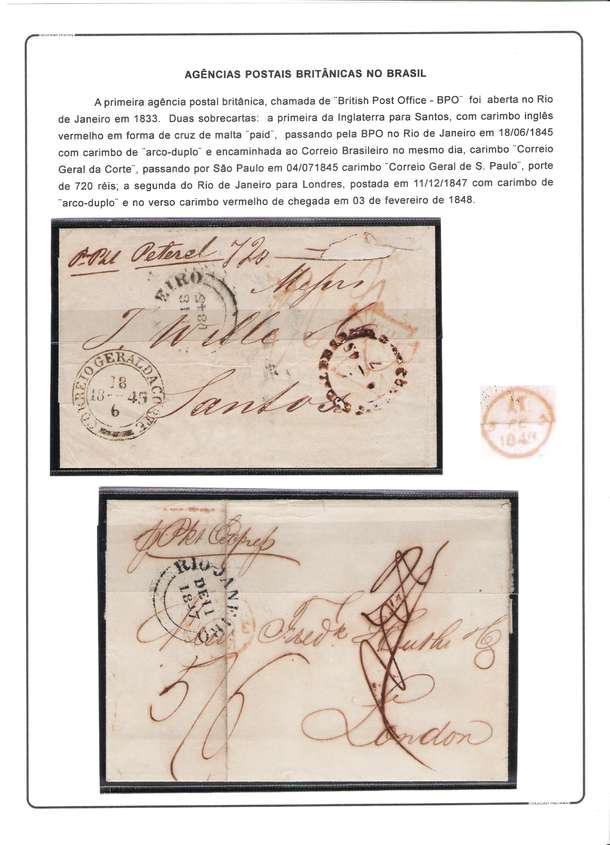 AGÊNCIAS POSTAIS BRITÂNICAS NO BRASIL
A primeira agência postal britânica, chamada de ¨British Post Office - BPO¨ foi aberta no Rio
de Janeiro em 1833. Duas sobrecartas: a primeira da Inglaterra para Santos, com carimbo inglês
vermelho em forma de cruz de malta ¨paid¨, passando pela BPO no Rio de Janeiro em 18/06/1845
com carimbo de ¨arco-duplo¨ e encaminhada ao Correio Brasileiro no mesmo dia, carimbo ¨Correio
Geral da Corte¨, passando por São Paulo em 04/071845 carimbo ¨Correio Geral de S. Paulo¨, porte
de 720 réis; a segunda do Rio de Janeiro para Londres, postada em 11/12/1847 com carimbo de
¨arco-duplo¨ e no verso carimbo vermelho de chegada em 03 de fevereiro de 1848.
Peterel 720
Messrs
EIRO
18
1845
J. Wille
CORREIO GERAL DA CORTE
18
18 45
6
Santos
3 FE 3
RIO-JANEIRO
DE 11
1847
Fredk Huth & Co
56
London